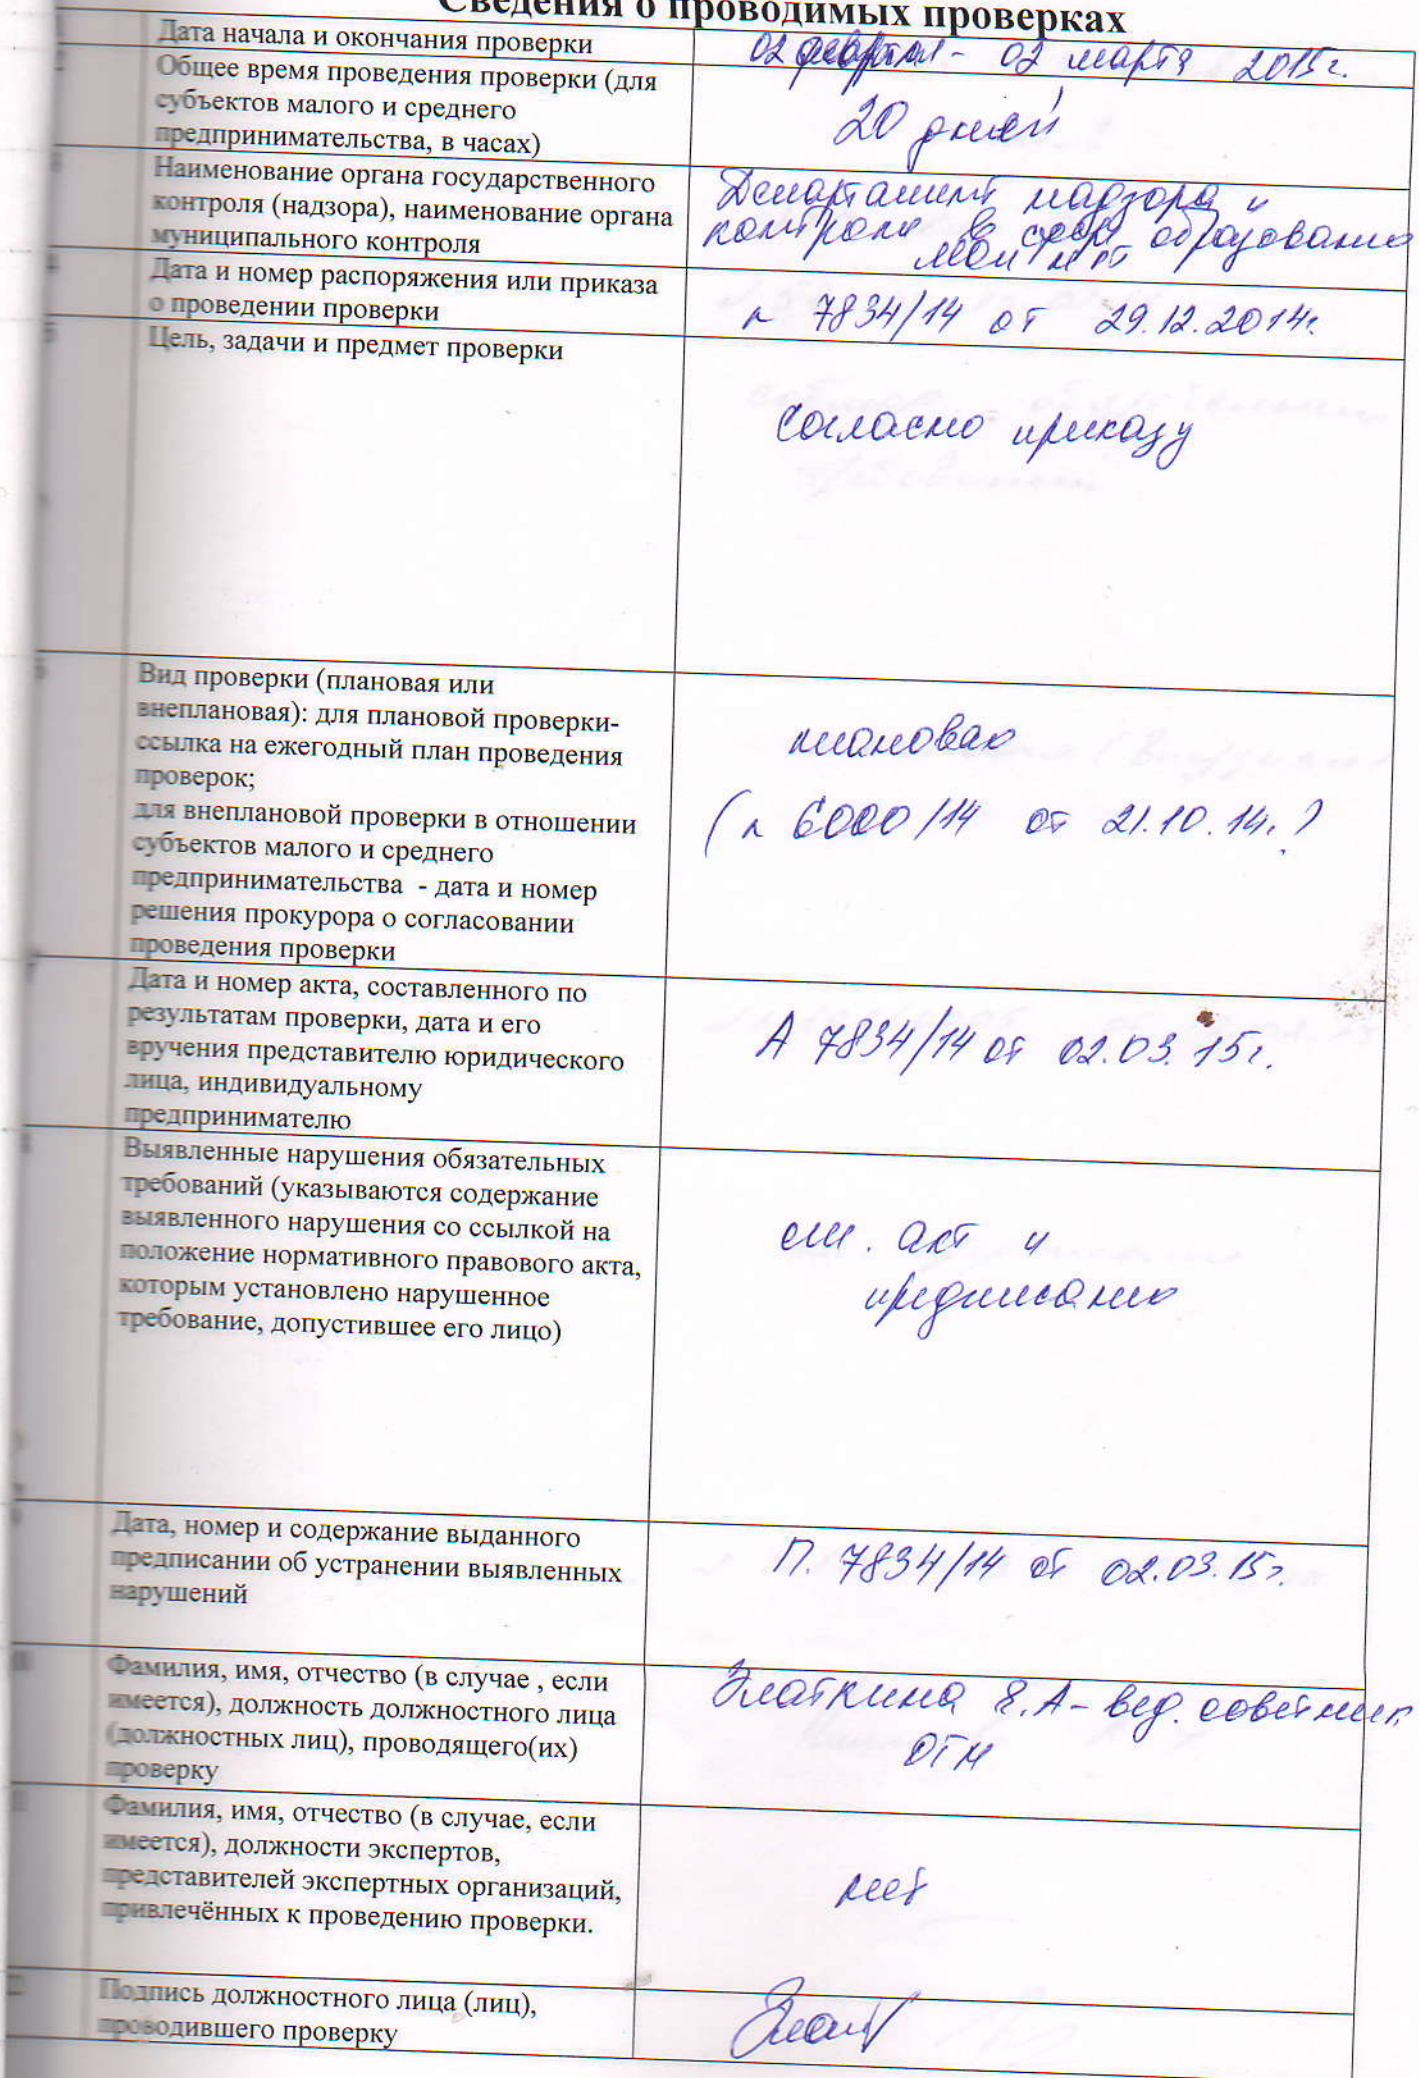 Сведения о проводимых проверках
Дата начала и окончания проверки
02 февраля - 02 марта 2015г.
Общее время проведения проверки (для
субъектов малого и среднего
предпринимательства, в часах)
20 дней
Наименование органа государственного
контроля (надзора), наименование органа
муниципального контроля
Департамент надзора и
контроля в сфере образования
МОиН РТ
Дата и номер распоряжения или приказа
о проведении проверки
п 7834/14 от 29.12.2014г.
5
Цель, задачи и предмет проверки
согласно приказу
6
Вид проверки (плановая или
внеплановая): для плановой проверки-
ссылка на ежегодный план проведения
проверок;
для внеплановой проверки в отношении
субъектов малого и среднего
предпринимательства - дата и номер
решения прокурора о согласовании
проведения проверки
плановая
(п 6000/14 от 21.10.14г.)
7
Дата и номер акта, составленного по
результатам проверки, дата и его
вручения представителю юридического
лица, индивидуальному
предпринимателю
А 7834/14 от 02.03.15г.
Выявленные нарушения обязательных
требований (указываются содержание
выявленного нарушения со ссылкой на
положение нормативного правового акта,
которым установлено нарушенное
требование, допустившее его лицо)
см. акт и
предписание
Дата, номер и содержание выданного
предписании об устранении выявленных
нарушений
П. 7834/14 от 02.03.15г.
Фамилия, имя, отчество (в случае , если
имеется), должность должностного лица
(должностных лиц), проводящего(их)
проверку
Златкина Е.А - вед. советник
ОТН
Фамилия, имя, отчество (в случае, если
имеется), должности экспертов,
представителей экспертных организаций,
привлечённых к проведению проверки.
нет
Подпись должностного лица (лиц),
проводившего проверку